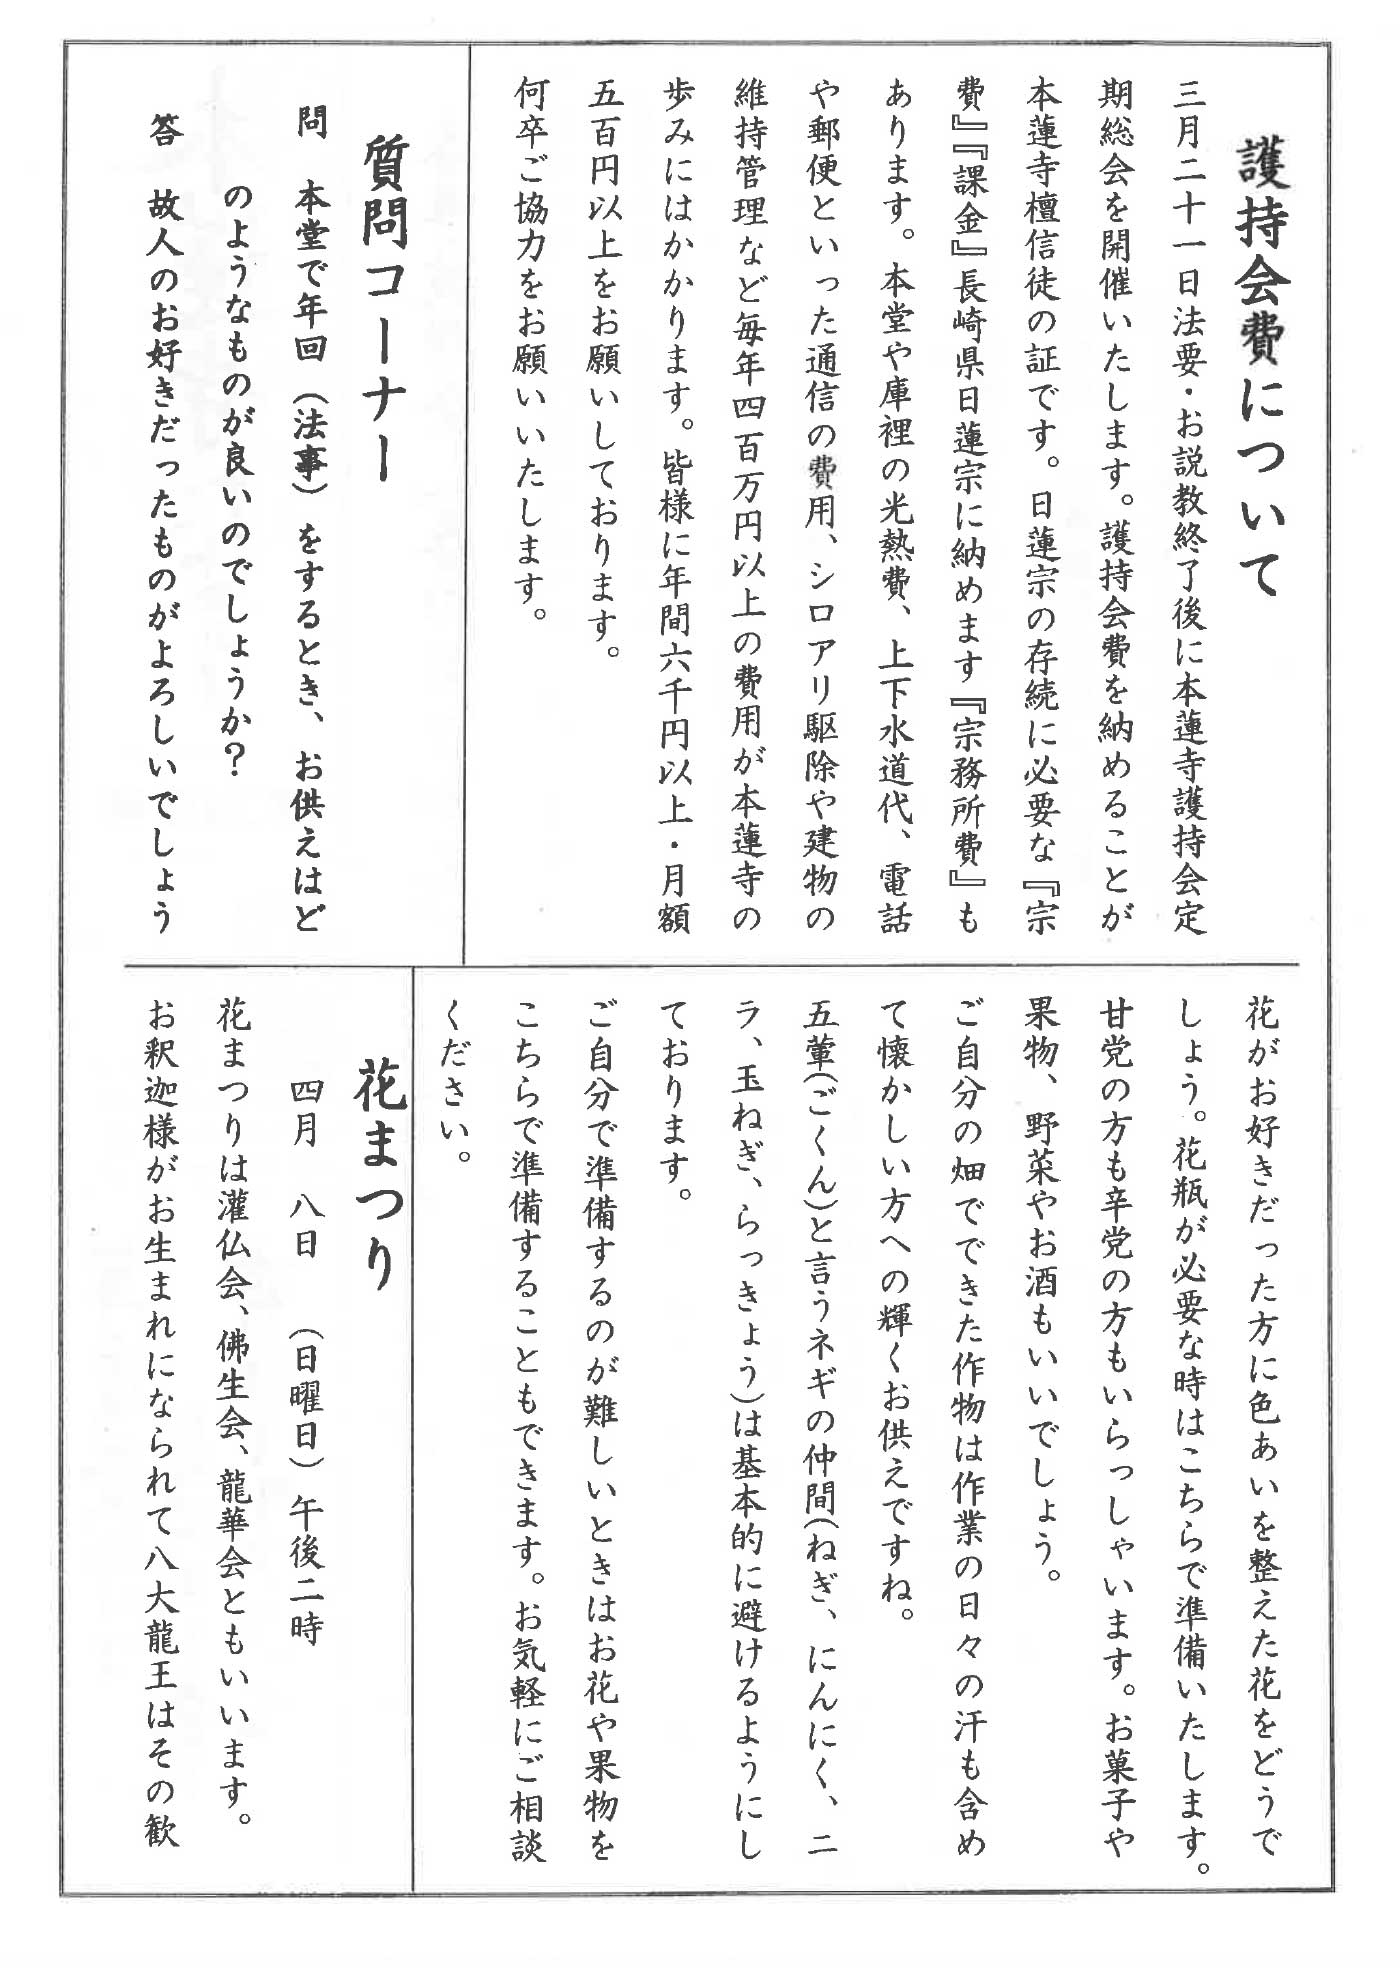 護持会費について
三月二十一日法要・お説教終了後に本蓮寺護持会定
期総会を開催いたします。護持会費を納めることが
本蓮寺檀信徒の証です。日蓮宗の存続に必要な『宗
費』『課金』長崎県日蓮宗に納めます『宗務所費』も
あります。本堂や庫裡の光熱費、上下水道代、電話
や郵便といった通信の費用、シロアリ駆除や建物の
維持管理など毎年四百万円以上の費用が本蓮寺の
歩みにはかかります。皆様に年間六千円以上・月額
五百円以上をお願いしております。
何卒ご協力をお願いいたします。
質問コーナー
問　本堂で年回（法事）をするとき、お供えはど
のようなものが良いのでしょうか？
答　故人のお好きだったものがよろしいでしょう
花がお好きだった方に色あいを整えた花をどうで
しょう。花瓶が必要な時はこちらで準備いたします。
甘党の方も辛党の方もいらっしゃいます。お菓子や
果物、野菜やお酒もいいでしょう。
ご自分の畑でできた作物は作業の日々の汗も含め
て懐かしい方への輝くお供えですね。
五葷（ごくん）と言うネギの仲間（ねぎ、にんにく、ニ
ラ、玉ねぎ、らっきょう）は基本的に避けるようにし
ております。
ご自分で準備するのが難しいときはお花や果物を
こちらで準備することもできます。お気軽にご相談
ください。
花まつり
四月　八日　（日曜日）午後二時
花まつりは灌仏会、佛生会、龍華会ともいいます。
お釈迦様がお生まれになられて八大龍王はその歓